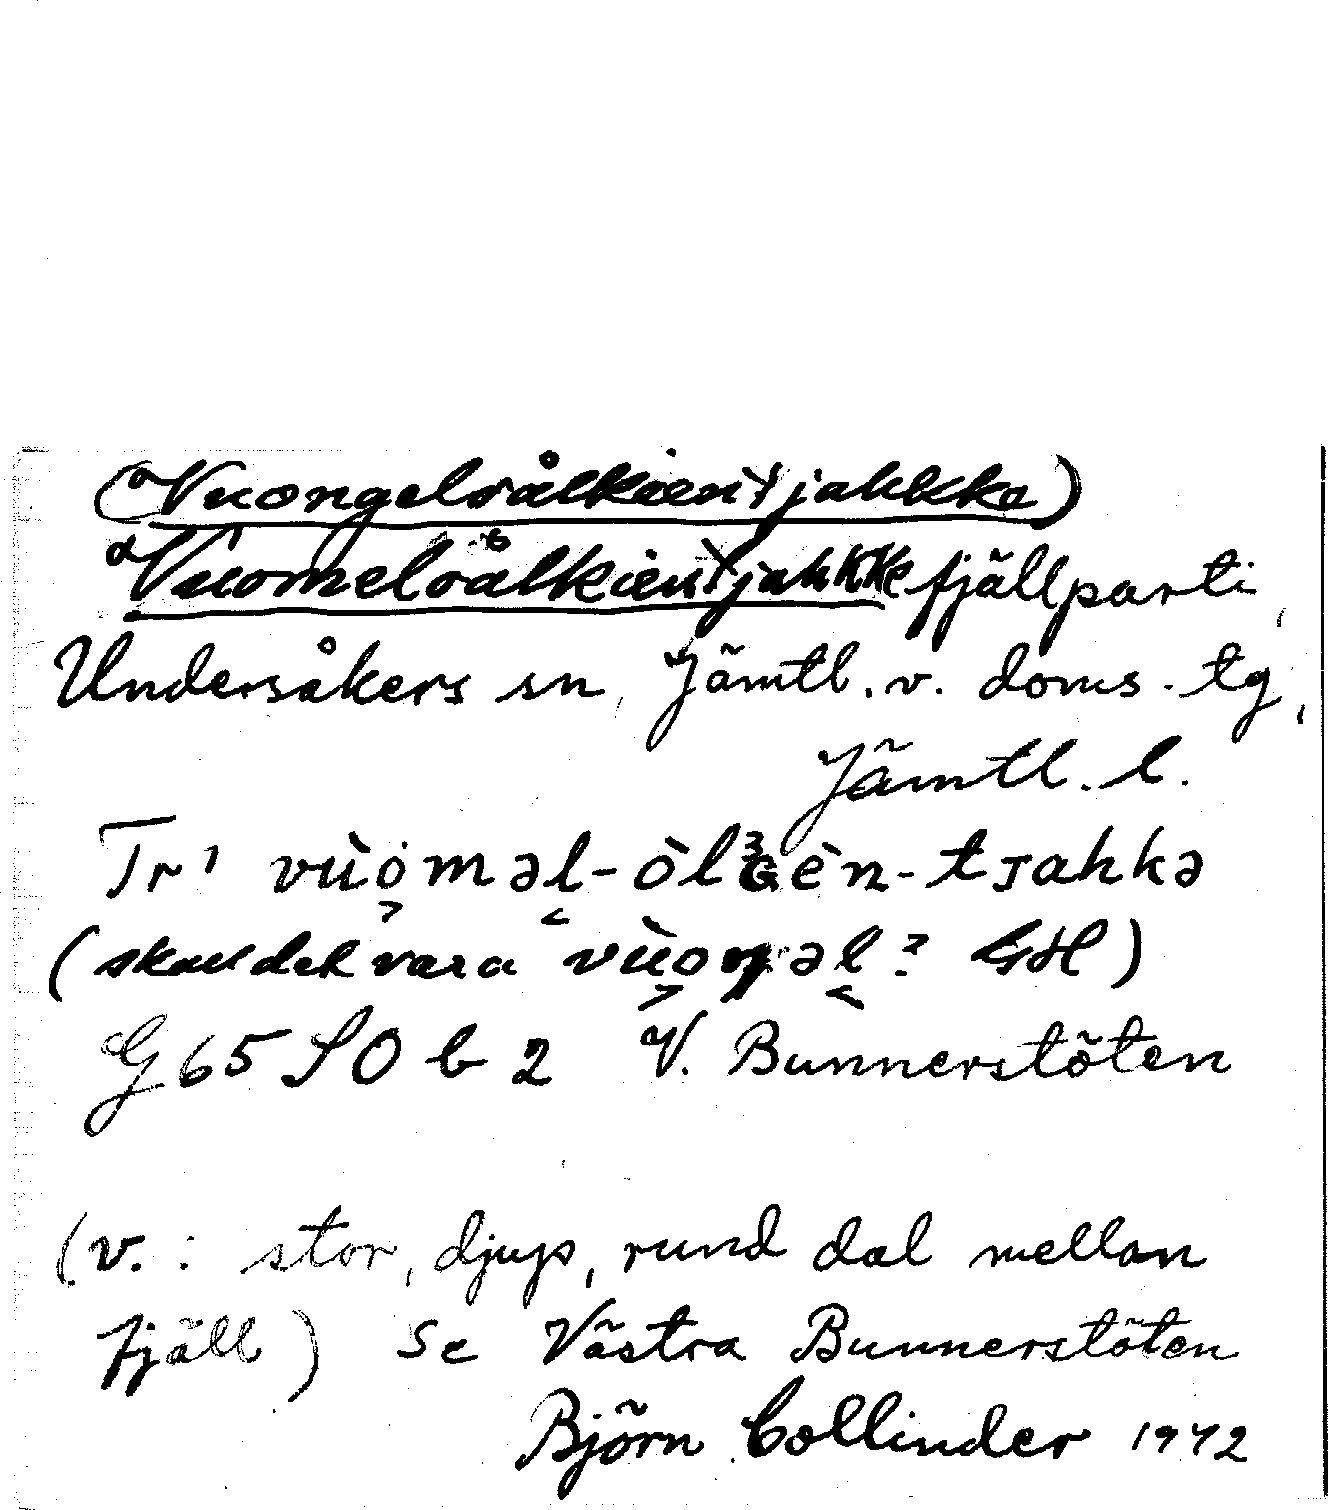 (Vuongelvålkientjahkke)
Vuomelvålkientjahkke fjällparti,
Undersåkers sn, Jämtl. v. doms. tg,
Jämtl. l.
Tr, vùo̤məl-òlᴣGèn-tjahkə
(skall det vara vùoŋəl? GH)
G 65 SO b 2 V. Bunnerstöten
(v. : stor, djup, rund dal mellan
fjäll) Se Västra Bunnerstöten
Björn Collinder 1942